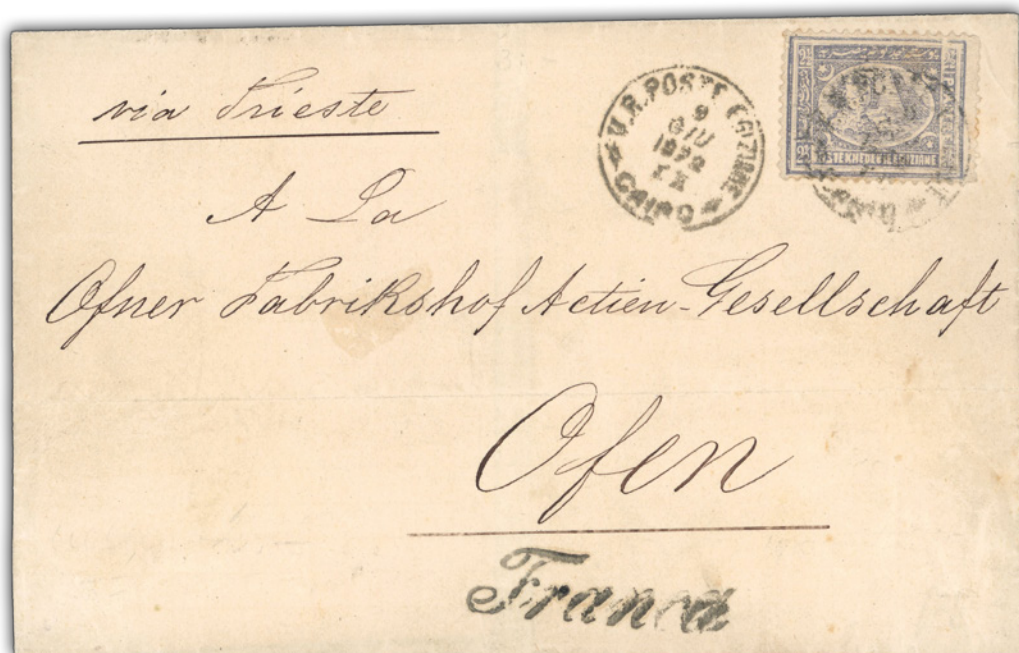 via Trieste
V.R. POSTE EGIZIANE
9
GIU
1872
CAIRO
2½
STE KHEDEUIE EGIZIANE
A La
Ofner Fabrikshof Actien-Gesellschaft
Ofen
Franca